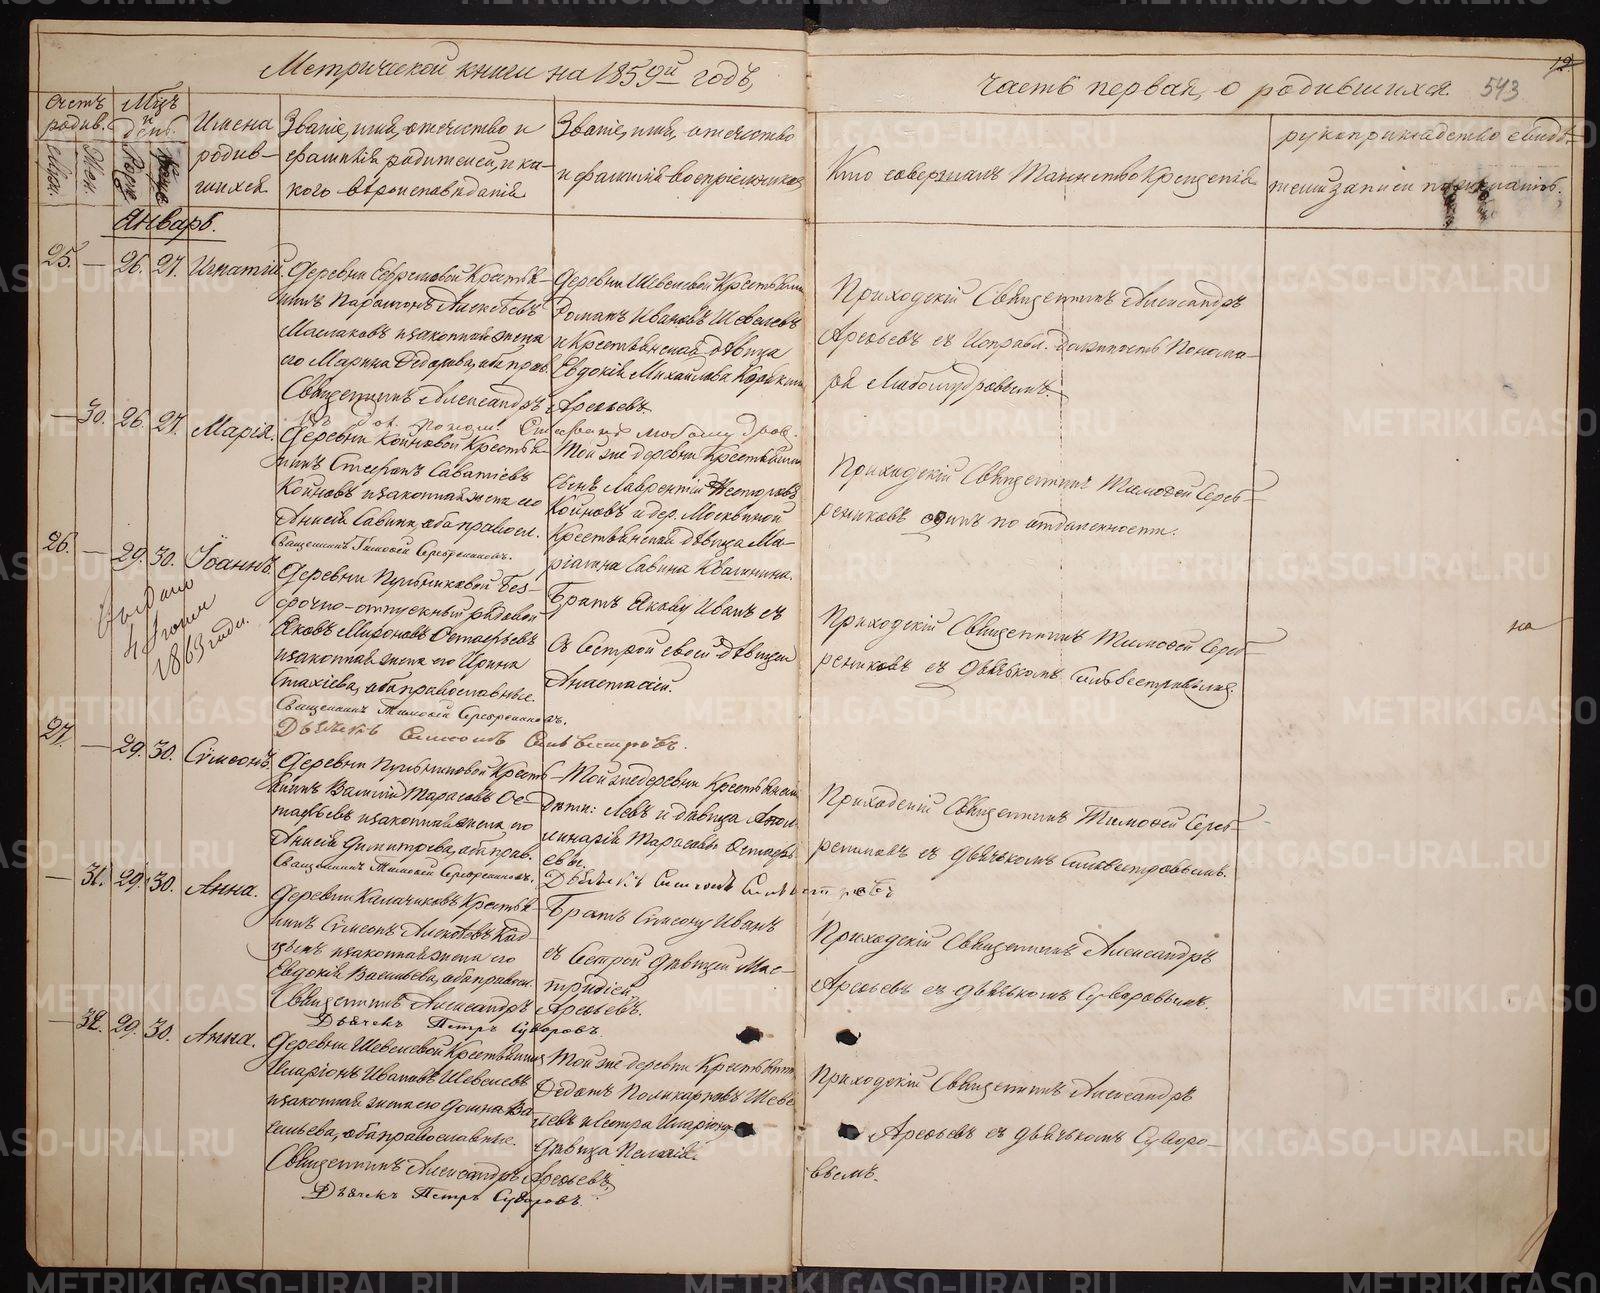 Метрической книги на 1859й годъ,
часть первая, о родившихся.
543
12
Счетъ родив.
Муж.
Жен.
Мцъ и день
Рожд.
Крещ.
Имена
родив-
шихся
Званіе, имя, отчество и
фамилія родителей, и ка-
кого вѣроисповѣданія
Званіе, имя, отчество
и фамилія воспріемниковъ
Кто совершалъ Таинство Крещенія
рукоприкладство свидѣ-
телей записи по желанію.
Январь.
25. — 26. 27. Игнатій.
Деревни Ефремовой Крестья-
нинъ Парамонъ Алексѣевъ
Маслаковъ и законная жена
его Марина Федорова, оба прав.
Священникъ Александръ Арефьевъ
Деревни Шевелевой Крестьянинъ
Романъ Ивановъ Шевелевъ
и Крестьянская дѣвица
Евдокія Михайлова
Приходскій Священникъ Александръ
Арефьевъ съ Исправл. должность Понома-
ря Любомудровымъ.
— 30. 26. 27. Марія.
Деревни Койновой Крестья-
нинъ Стефанъ Саватіевъ
Койновъ и законная жена его
Анисія Савина, оба правосл.
Священникъ Тимофей Серебрениковъ.
Той же деревни Крестьянинъ
сынъ Лаврентій Несторовъ
Койновъ и дер. Москвиной
Крестьянская дѣвица Ма-
ріамна Савина Квашнина.
Приходскій Священникъ Тимофей Сереб-
рениковъ одинъ по отдаленности.
26. — 29. 30. Іоаннъ.
Выдано
4 Іюня
1863 года.
Деревни Пульниковой Без-
срочно-отпускный рядовой
Яковъ Мироновъ Остафьевъ
и законная жена его Ирина
Стахіева, оба православные.
Священникъ Тимофей Серебрениковъ.
Дьячекъ Симеонъ Сильвестровъ.
Братъ Якову Иванъ съ
Сестрой своей дѣвицей
Анастасіей.
Приходскій Священникъ Тимофей Сереб-
рениковъ съ дьячкомъ Сильвестровымъ.
на
27. — 29. 30. Сѵмеонъ.
Деревни Пульниковой Кресть-
янинъ Василій Тарасовъ Ос-
тафьевъ и законная жена его
Анисія Димитріева, оба прав.
Священникъ Тимофей Серебрениковъ.
Той же деревни Крестьянскія
дѣти: Левъ и дѣвица Апол-
линарія Тарасовы Остафь-
евы.
Дьячекъ Симеонъ Сильвестровъ
Приходскій Священникъ Тимофей Сереб-
рениковъ съ дьячкомъ Сильвестровымъ.
— 31. 29. 30. Анна.
Деревни Калачиковъ Крестья-
нинъ Сѵмеонъ Алексѣевъ
и законная жена его
Евдокія Васильева, оба правосл.
Священникъ Александръ Арефьевъ.
Дьячекъ Петръ Суворовъ
Братъ Сѵмеону Иванъ
съ Сестрой дѣвицей Мас-
тридіей
Приходскій Священникъ Александръ
Арефьевъ съ дьячкомъ Суворовымъ.
— 32. 29. 30. Анна.
Деревни Шевелевой Крестьянинъ
Иларіонъ Ивановъ Шевелевъ
и законная жена его Домна Ва-
сильева, оба православные.
Священникъ Александръ Арефьевъ
Дьячекъ Петръ Суворовъ.
Той же деревни Крестьянинъ
Федотъ Поликарповъ Шеве-
левъ и Сестра Иларіону
дѣвица Пелагія.
Приходскій Священникъ Александръ
Арефьевъ съ дьячкомъ Суворо-
вымъ.
METRIKI.GASO-URAL.RU